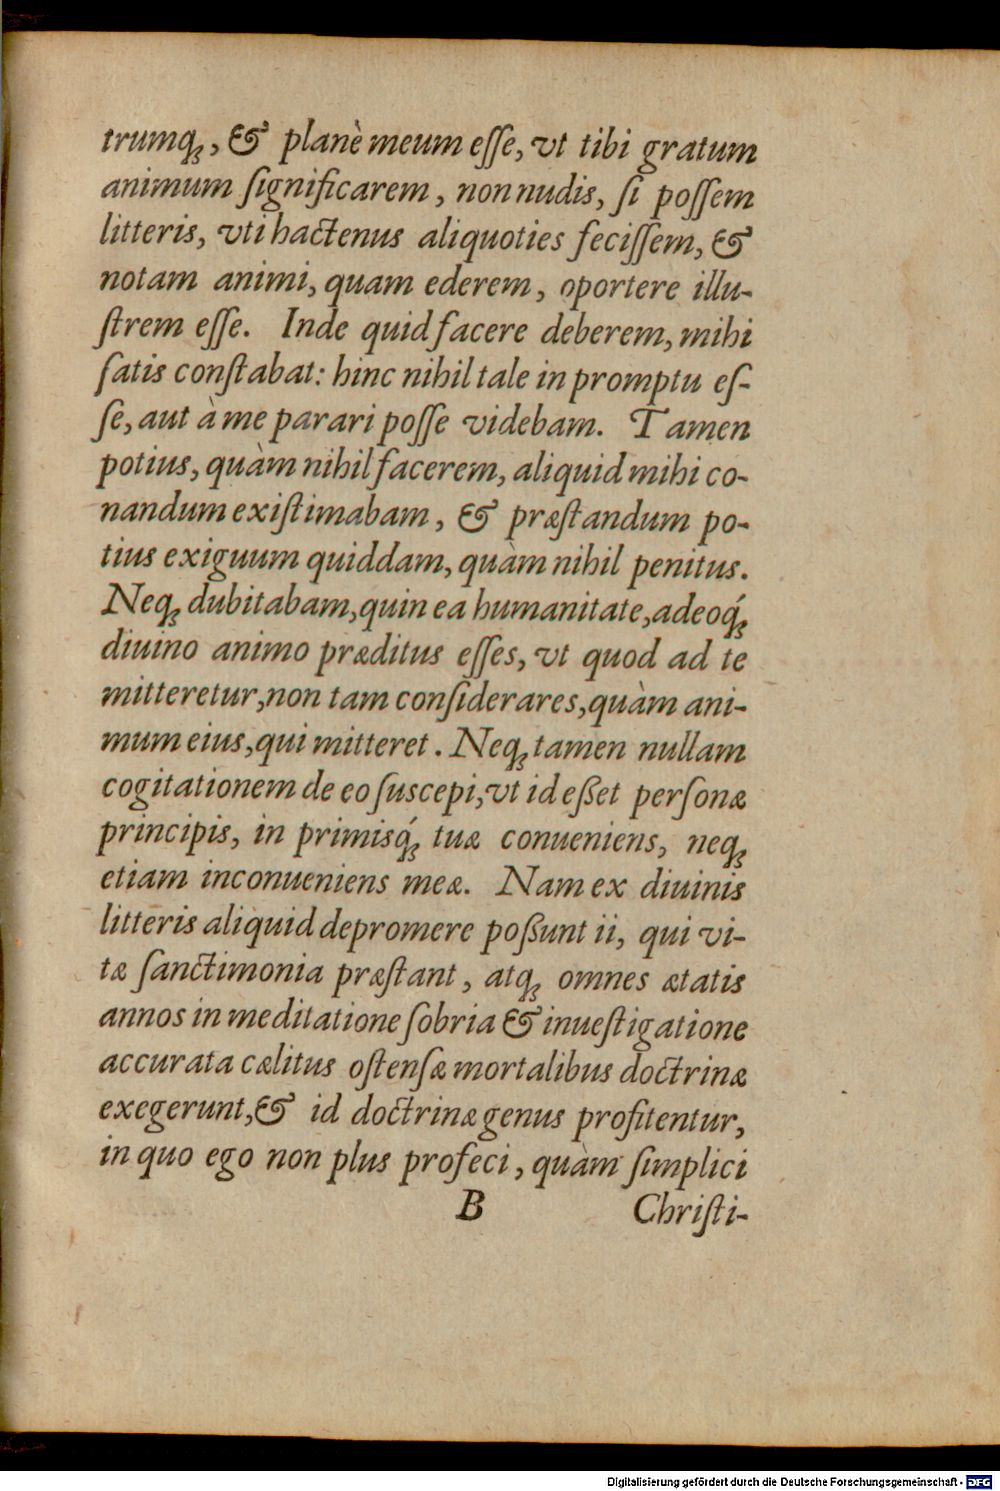 trumq́ꝫ, & planè meum eſſe, vt tibi gratum
animum ſignificarem, non nudis, ſi poſſem
litteris, vti hactenus aliquoties feciſſem, &
notam animi, quam ederem, oportere illu-
ſtrem eſſe. Inde quid facere deberem, mihi
ſatis conſtabat: hinc nihil tale in promptu eſ-
ſe, aut à me parari poſſe videbam. Tamen
potius, quàm nihil facerem, aliquid mihi co-
nandum exiſtimabam, & præſtandum po-
tius exiguum quiddam, quàm nihil penitus.
Neqꝫ dubitabam, quin ea humanitate, adeoq́ꝫ
diuino animo præditus eſſes, vt quod ad te
mitteretur, non tam conſiderares, quàm ani-
mum eius, qui mitteret. Neqꝫ tamen nullam
cogitationem de eo ſuscepi, vt id eßet perſonæ
principis, in primisq́ꝫ tuæ conueniens, neqꝫ
etiam inconueniens meæ. Nam ex diuinis
litteris aliquid depromere poßunt ii, qui vi-
tæ ſanctimonia præſtant, atqꝫ omnes ætatis
annos in meditatione ſobria & inueſtigatione
accurata cælitus oſtenſæ mortalibus doctrinæ
exegerunt, & id doctrinæ genus profitentur,
in quo ego non plus profeci, quàm ſimplici
B Chriſti-
Digitalisierung gefördert durch die Deutsche Forschungsgemeinschaft - DFG